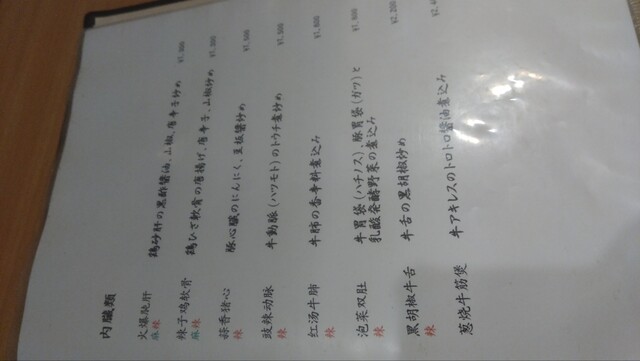 内臓類
火爆肫肝
麻辣
鶏砂肝の黒酢醤油、山椒、唐辛子炒め
¥1,400
辣子鸡软骨
麻辣
鶏ひざ軟骨の唐揚げ、唐辛子、山椒炒め
¥1,200
蒜香猪心
豚心臓のにんにく、豆板醤炒め
¥1,500
豉辣动脉
辣
牛動脈(ハツモト)のトウチ煮炒め
¥1,500
红汤牛肺
辣
牛肺の香辛料煮込み
¥1,800
泡菜双肚
辣
牛胃袋(ハチノス)、豚胃袋(ガツ)と
乳酸発酵野菜の煮込み
¥1,800
黑胡椒牛舌
辣
牛舌の黒胡椒炒め
¥2,200
葱烧牛筋煲
牛アキレスのトロトロ醤油煮込み